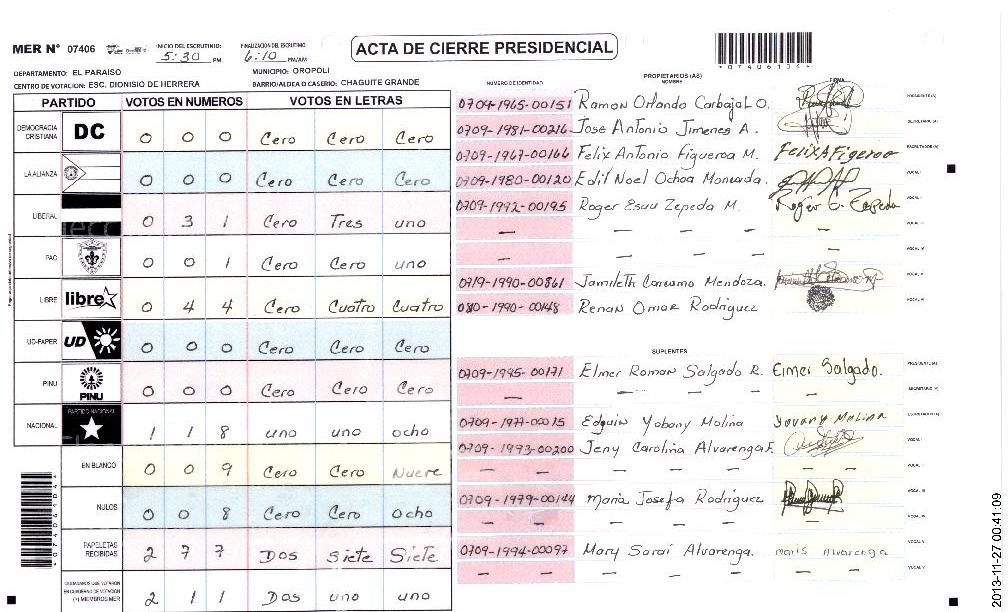 MER N° 07406
INICIO DEL ESCRUTINIO: 5:30 PM
FINALIZACION DEL ESCRUTINIO 6:10 PM/AM
ACTA DE CIERRE PRESIDENCIAL
DEPARTAMENTO: EL PARAISO
MUNICIPIO: OROPOLI
CENTRO DE VOTACION: ESC. DIONISIO DE HERRERA
BARRIO/ALDEA O CASERIO: CHAGUITE GRANDE
PARTIDO VOTOS EN NUMEROS VOTOS EN LETRAS
DEMOCRACIA CRISTIANA DC 0 0 0 Cero Cero Cero
LA ALIANZA 0 0 0 Cero Cero Cero
LIBERAL 0 3 1 Cero Tres uno
PAC 0 0 1 Cero Cero uno
LIBRE libre 0 4 4 Cero Cuatro Cuatro
UD-FAPER UD 0 0 0 Cero Cero Cero
PINU PINU 0 0 0 Cero Cero Cero
NACIONAL PARTIDO NACIONAL 1 1 8 uno uno ocho
EN BLANCO 0 0 9 Cero Cero Nueve
NULOS 0 0 8 Cero Cero ocho
PAPELETAS RECIBIDAS 2 7 7 Dos Siete Siete
CIUDADANOS QUE VOTARON EN CUADERNO DE VOTACION (+) MIEMBROS MER 2 1 1 Dos uno uno
NUMERO DE IDENTIDAD PROPIETARIOS (AS) NOMBRE FIRMA
0704-1965-00151 Ramon Orlando Carbajal O. PRESIDENTE (A)
0709-1981-00216 Jose Antonio Jimenes A. SECRETARIO (A)
0709-1967-00166 Felix Antonio Figueroa M. Felix A Figeroo ESCRUTADOR (A)
0709-1980-00120 Edit Noel Ochoa Moncada. VOCAL I
0709-1992-00195 Roger Esau Zepeda M. VOCAL II
— — — —
—
0719-1990-00861 Jamileth Carcamo Mendoza.
080-1990-00148 Renan Omar Rodriguez
SUPLENTES
0709-1995-00171 Elmer Roman Salgado R. Elmer Salgado. PRESIDENTE (A)
— — — — SECRETARIO (A)
0709-1977-00075 Edguin Yobany Molina Yovany Molina
0709-1993-00200 Jeny Carolina Alvarenga F.
— — — — — —
0709-1979-00144 Maria Josefa Rodriguez
— — — — —
0709-1994-00097 Mary Sarai Alvarenga. Maris Alvarenga
— — — — — —
2013-11-27 00:41:09